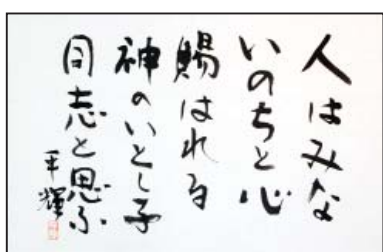 人はみな
いのちと心
賜はれる
神のいとし子
同志と思ふ
平輝